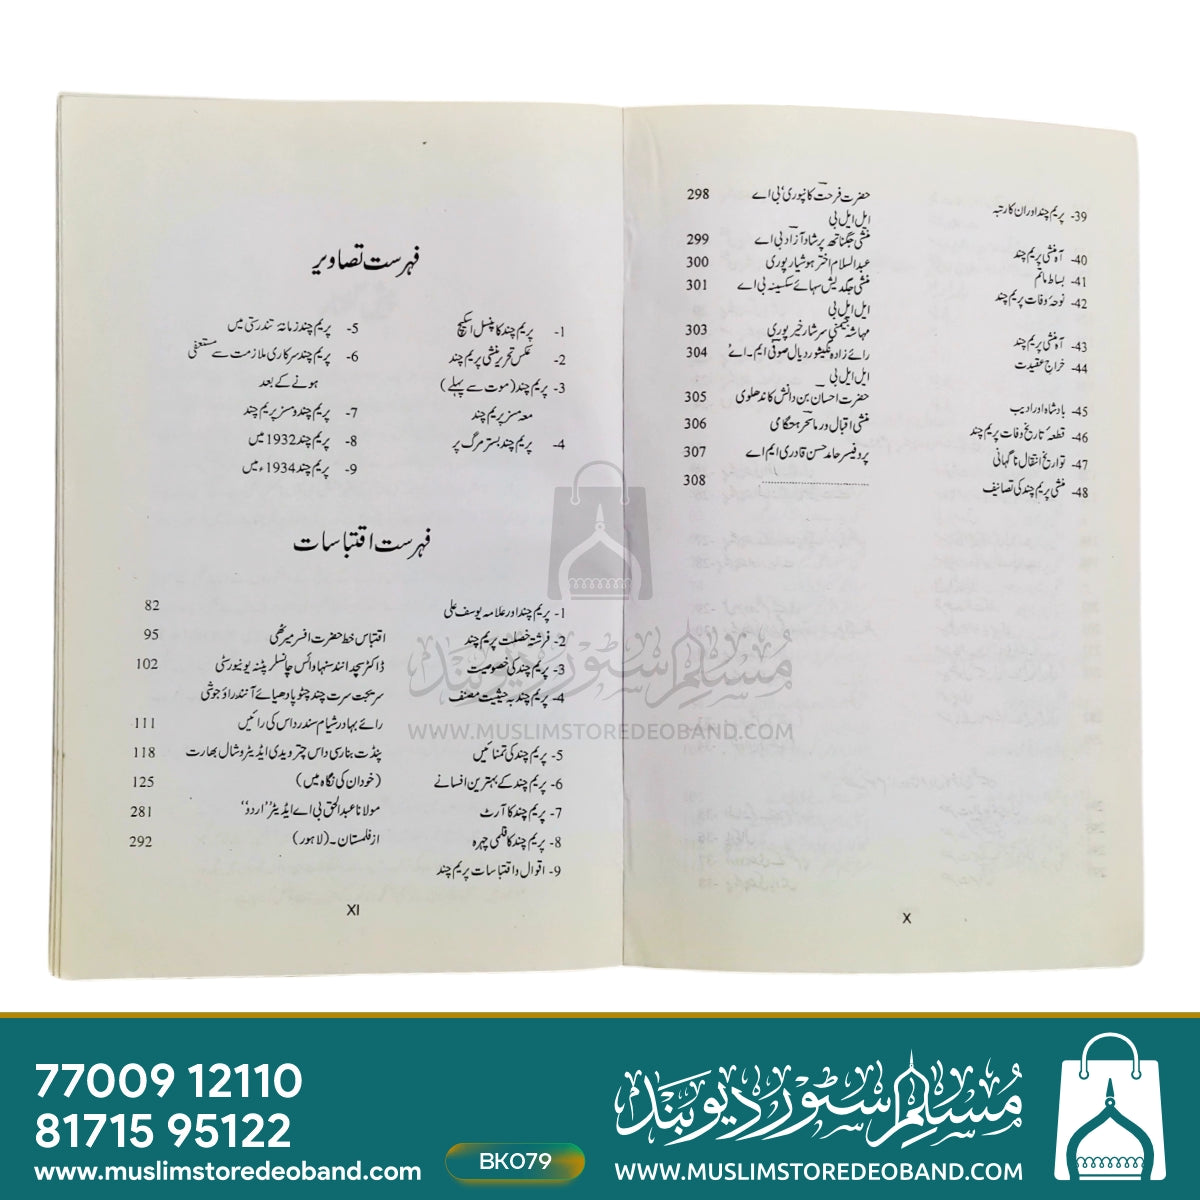 39- پریم چند اور ان کا رتبہ حضرت فرحت کانپوری، بی اے 298
ایل ایل بی
40- آہ منشی پریم چند منشی جگناتھ پرشاد آزاد بی اے 299
41- بساط ماتم عبدالسلام اختر ہوشیار پوری 300
42- نوحۂ وفات پریم چند منشی جگدیش سہائے سکسینہ بی اے 301
ایل ایل بی
43- آہ منشی پریم چند مہاشہ جیمنی سرشار خیرپوری 303
44- خراج عقیدت رائے زادہ نگیشور دیال صوفی ایم۔اے 304
ایل ایل بی
45- بادشاہ اور ادیب حضرت احسان بن دانش کاندھلوی 305
46- قطعۂ تاریخ وفات پریم چند منشی اقبال ورما سحر ہتگامی 306
47- تواریخ انتقال ناگہانی پروفیسر حامد حسن قادری ایم اے 307
48- منشی پریم چند کی تصانیف 308
X
فہرست تصاویر
1- پریم چند کا پنسل اسکیچ
2- عکس تحریر منشی پریم چند
3- پریم چند (موت سے پہلے)
معہ مسز پریم چند
4- پریم چند بستر مرگ پر
5- پریم چند زمانۂ تندرستی میں
6- پریم چند سرکاری ملازمت سے مستعفی
ہونے کے بعد
7- پریم چند و مسز پریم چند
8- پریم چند 1932 میں
9- پریم چند 1934ء میں
فہرست اقتباسات
1- پریم چند اور علامہ یوسف علی 82
2- فرشتہ خصلت پریم چند اقتباس خط حضرت افسر میرٹھی 95
3- پریم چند کی خصوصیت ڈاکٹر سچدانند سنہا وائس چانسلر پٹنہ یونیورسٹی 102
4- پریم چند بہ حیثیت مصنف سریجت سرت چند چٹوپادھیائے آنند راؤ جوشی
رائے بہادر شیام سندر داس کی رائیں 111
5- پریم چند کی تمنائیں پنڈت بنارسی داس چترویدی ایڈیٹر وشال بھارت 118
6- پریم چند کے بہترین افسانے (خود ان کی نگاہ میں) 125
7- پریم چند کا آرٹ مولانا عبدالحق بی اے ایڈیٹر "اردو" 281
8- پریم چند کا قلمی چہرہ از فلمستان۔ (لاہور) 292
9- اقوال و اقتباسات پریم چند
XI
مسلم سٹور دیوبند
WWW.MUSLIMSTOREDEOBAND.COM
77009 12110
81715 95122
www.muslimstoredeoband.com
BK079
مسلم سٹور دیوبند
WWW.MUSLIMSTOREDEOBAND.COM